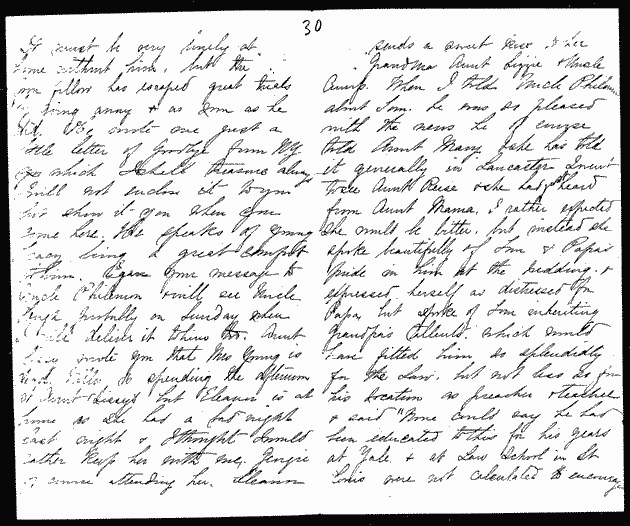 30
It must be very lonely at
home without him, but the
fellow has escaped great trials
going away & as soon as he
wrote me just a
little letter of Goodbye from N.Y.
which I shall treasure always
will not enclose it to you
show it you when you
come here. He speaks of young
being a great comfort
to him. Gave your message to
Uncle Philemon & will see Uncle
Hugh probably on Sunday when
deliver it to him. Aunt
wrote you that Mrs Young is
is spending the afternoon
at Aunt Lizzys but Eleanor is at
home as she had a bad night
last night & I thought I would
rather keep her with me, Georgie
of course attending her. Eleanor
sends a sweet kiss to her
Grandma Aunt Lizzie & Uncle
When I told Uncle Philemon
about Tom. he was so pleased
with the news he of course
told Aunt Mary & she has told
it generally in Lancaster I went
to see Aunt Reese & she had heard
from Aunt Mama, I rather expected
she would be bitter, but instead she
spoke beautifully of Tom & Papa's
pride in him at the wedding. &
expressed herself as distressed for
Papa, but spoke of Tom inheriting
Grandpa's talents. which would
have fitted him so splendidly
for the Law, but not less so for
his vocation as preacher & teacher
& said "None could say he had
been educated to this for his years
at Yale & at Law School in St
Louis were not calculated to encourage